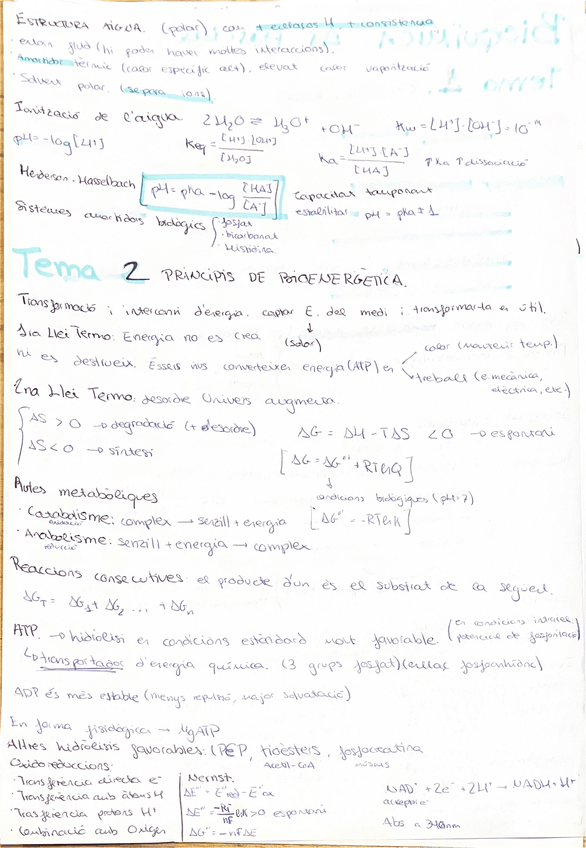 ESTRUCTURA AIGUA. (polar) con + enllaços H, + consistencia
· estan fluid (hi poden haver moltes interaccions).
· Amortidor tèrmic (calor específic alt), elevat calor vaporització
· Solvent polar. (separa ions)
Ionització de l'aigua 2H2O ⇌ H3O+ + OH- Kw = [H+]·[OH-] = 10^-14
pH = -log[H+] Keq = [H+]·[OH-] / [H2O] Ka = [H+]·[A-] / [HA] ↑Ka ↑dissociació
Henderson-Hasselbach pH = pKa - log [HA] / [A-] capacitat tamponant
estabilitar pH = pKa ± 1
Sistemes amortidors biològics · fosfat
· bicarbonat
· histidina
Tema 2 PRINCIPIS DE BIOENERGÈTICA.
Transformació i intercanvi d'energia. captar E. del medi i transformar-la en útil.
(solar)
1ra Llei Termo: Energia no es crea
ni es destrueix. Éssers vius converteixen energia (ATP) en
calor (mantenir temp.)
treball (e. mecànica,
elèctrica, etc.)
2na Llei Termo: desordre Univers augmenta.
ΔS > 0 → degradació (+ desordre) ΔG = ΔH - TΔS < 0 → espontani
ΔS < 0 → síntesi [ΔG = ΔG°' + RTlnQ]
condicions biològiques (pH=7)
Rutes metabòliques
· Catabolisme: complex → senzill + energia [ΔG°' = -RTlnK]
oxidació
· Anabolisme: senzill + energia → complex
reducció
Reaccions consecutives el producte d'un és el substrat de la següent.
ΔGT = ΔG1 + ΔG2 ... + ΔGn
ATP. → hidròlisi en condicions estàndard molt favorable. (en condicions intracel.
potencial de fosforilació)
↳ transportador d'energia química. (3 grups fosfat) (enllaç fosfoanhidre)
ADP és més estable (menys repulsió, major solvatació)
En forma fisiològica → MgATP
Altres hidròlisis favorables: (PEP, tioèsters, fosfocreatina
Acetil-CoA músculs
Oxidoreduccions:
· Transferència directa e-
· Transferència amb àtoms H
· Trasferència protons H+
· Combinació amb Oxigen
Nernst.
ΔE°' = E°'red - E°'ox
ΔE°' = -RT / nF lnK > 0 espontani
ΔG°' = -nFΔE
NAD+ + 2e- + 2H+ → NADH + H+
Abs a 340nm